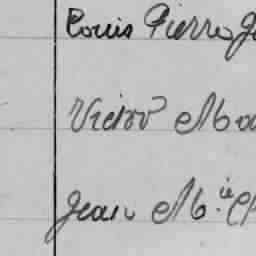 Louis Pierre J
Victor Ma
Jean M.ie Ch